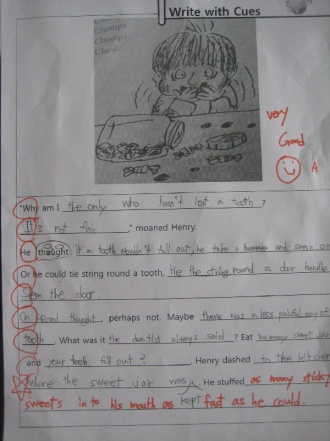 Write with Cues
Chomp...
Chomp...
Chew...
very
Good
A
"Why am I the only who hasn't lost a tooth ?
It's not fair ," moaned Henry.
He thought if a tooth wouldn't fall out, he take a hammer and smash
Or he could tie string round a tooth, tie the string round a door handle
slam the door
On second thought perhaps not. Maybe there was a less painful way of
tooth . What was it the dentist always said ? Eat too many sweet
and your teeth fall out ? Henry dashed to the kitchen
where the sweet jar was . He stuffed as many sticky
sweets in to his mouth as kept fast as he could.